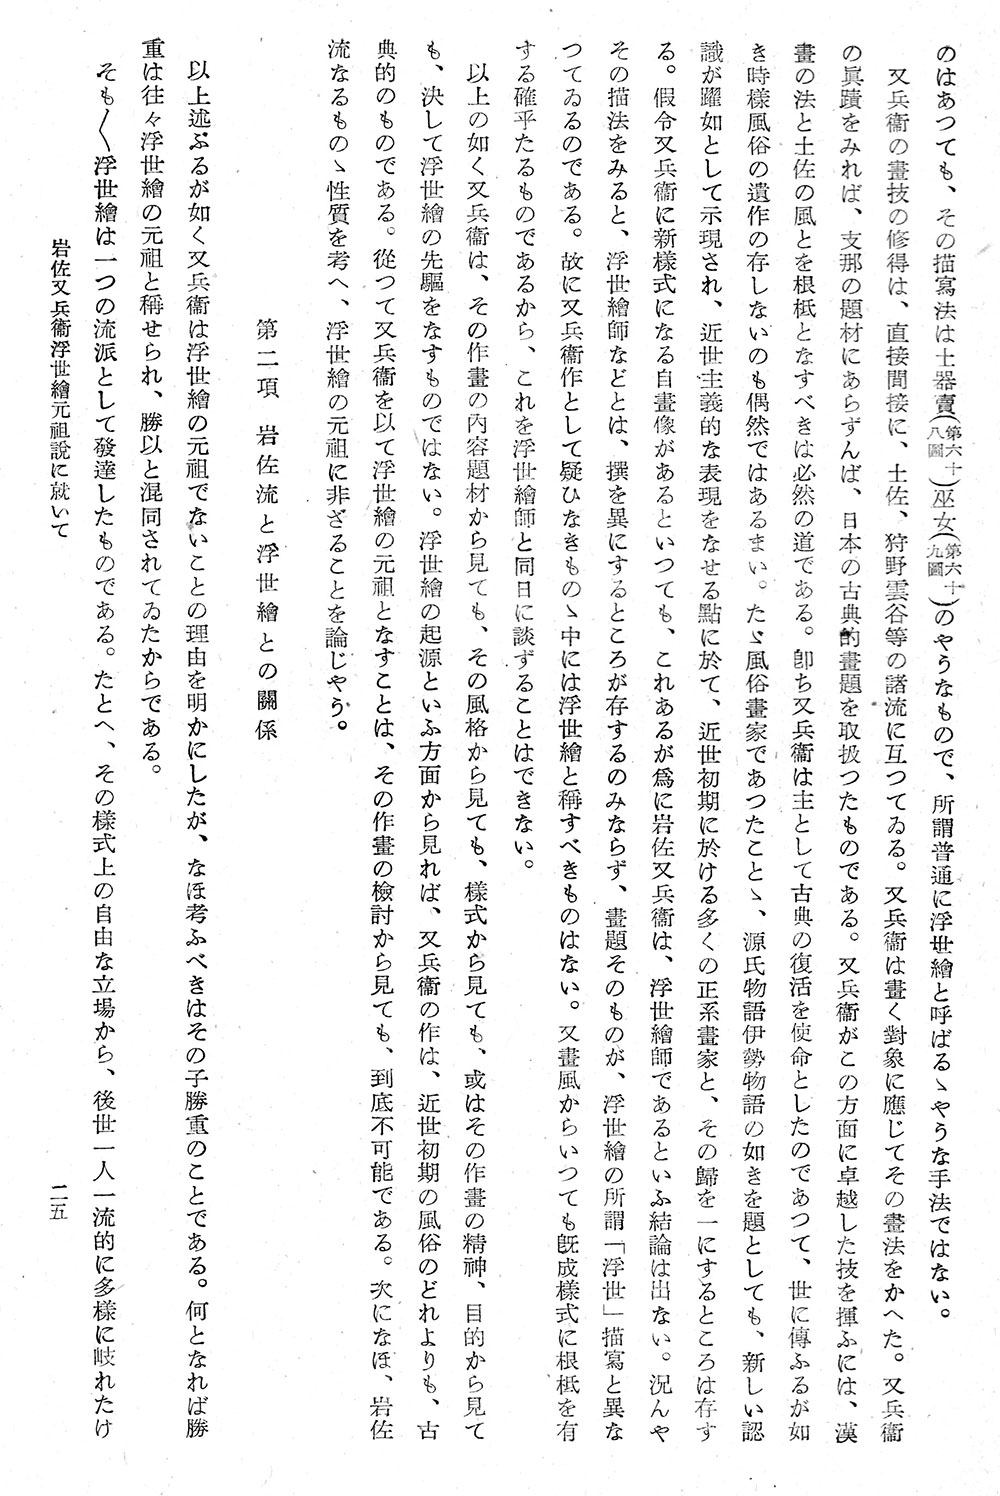 のはあつても、その描寫法は土器賣(第六十八圖)巫女(第六十九圖)のやうなもので、所謂普通に浮世繪と呼ばるゝやうな手法ではない。
又兵衞の畫技の修得は、直接間接に、土佐、狩野雲谷等の諸流に亙つてゐる。又兵衞は畫く對象に應じてその畫法をかへた。又兵衞
の眞蹟をみれば、支那の題材にあらずんば、日本の古典的畫題を取扱つたものである。又兵衞がこの方面に卓越した技を揮ふには、漢
畫の法と土佐の風とを根柢となすべきは必然の道である。卽ち又兵衞は主として古典の復活を使命としたのであつて、世に傳ふるが如
き時樣風俗の遺作の存しないのも偶然ではあるまい。たゞ風俗畫家であつたことゝ、源氏物語伊勢物語の如きを題としても、新しい認
識が躍如として示現され、近世主義的な表現をなせる點に於て、近世初期に於ける多くの正系畫家と、その歸を一にするところは存す
る。假令又兵衞に新樣式になる自畫像があるといつても、これあるが爲に岩佐又兵衞は、浮世繪師であるといふ結論は出ない。況んや
その描法をみると、浮世繪師などとは、撰を異にするところが存するのみならず、畫題そのものが、浮世繪の所謂「浮世」描寫と異な
つてゐるのである。故に又兵衞作として疑ひなきものゝ中には浮世繪と稱すべきものはない。又畫風からいつても旣成樣式に根柢を有
する確乎たるものであるから、これを浮世繪師と同日に談ずることはできない。
以上の如く又兵衞は、その作畫の內容題材から見ても、その風格から見ても、樣式から見ても、或はその作畫の精神、目的から見て
も、決して浮世繪の先驅をなすものではない。浮世繪の起源といふ方面から見れば、又兵衞の作は、近世初期の風俗のどれよりも、古
典的のものである。從つて又兵衞を以て浮世繪の元祖となすことは、その作畫の檢討から見ても、到底不可能である。次になほ、岩佐
流なるものゝ性質を考へ、浮世繪の元祖に非ざることを論じやう。
第二項 岩佐流と浮世繪との關係
以上述ぶるが如く又兵衞は浮世繪の元祖でないことの理由を明かにしたが、なほ考ふべきはその子勝重のことである。何となれば勝
重は往々浮世繪の元祖と稱せられ、勝以と混同されてゐたからである。
そも〱浮世繪は一つの流派として發達したものである。たとへ、その樣式上の自由な立場から、後世一人一流的に多樣に岐れたけ
岩佐又兵衞浮世繪元祖說に就いて
二五